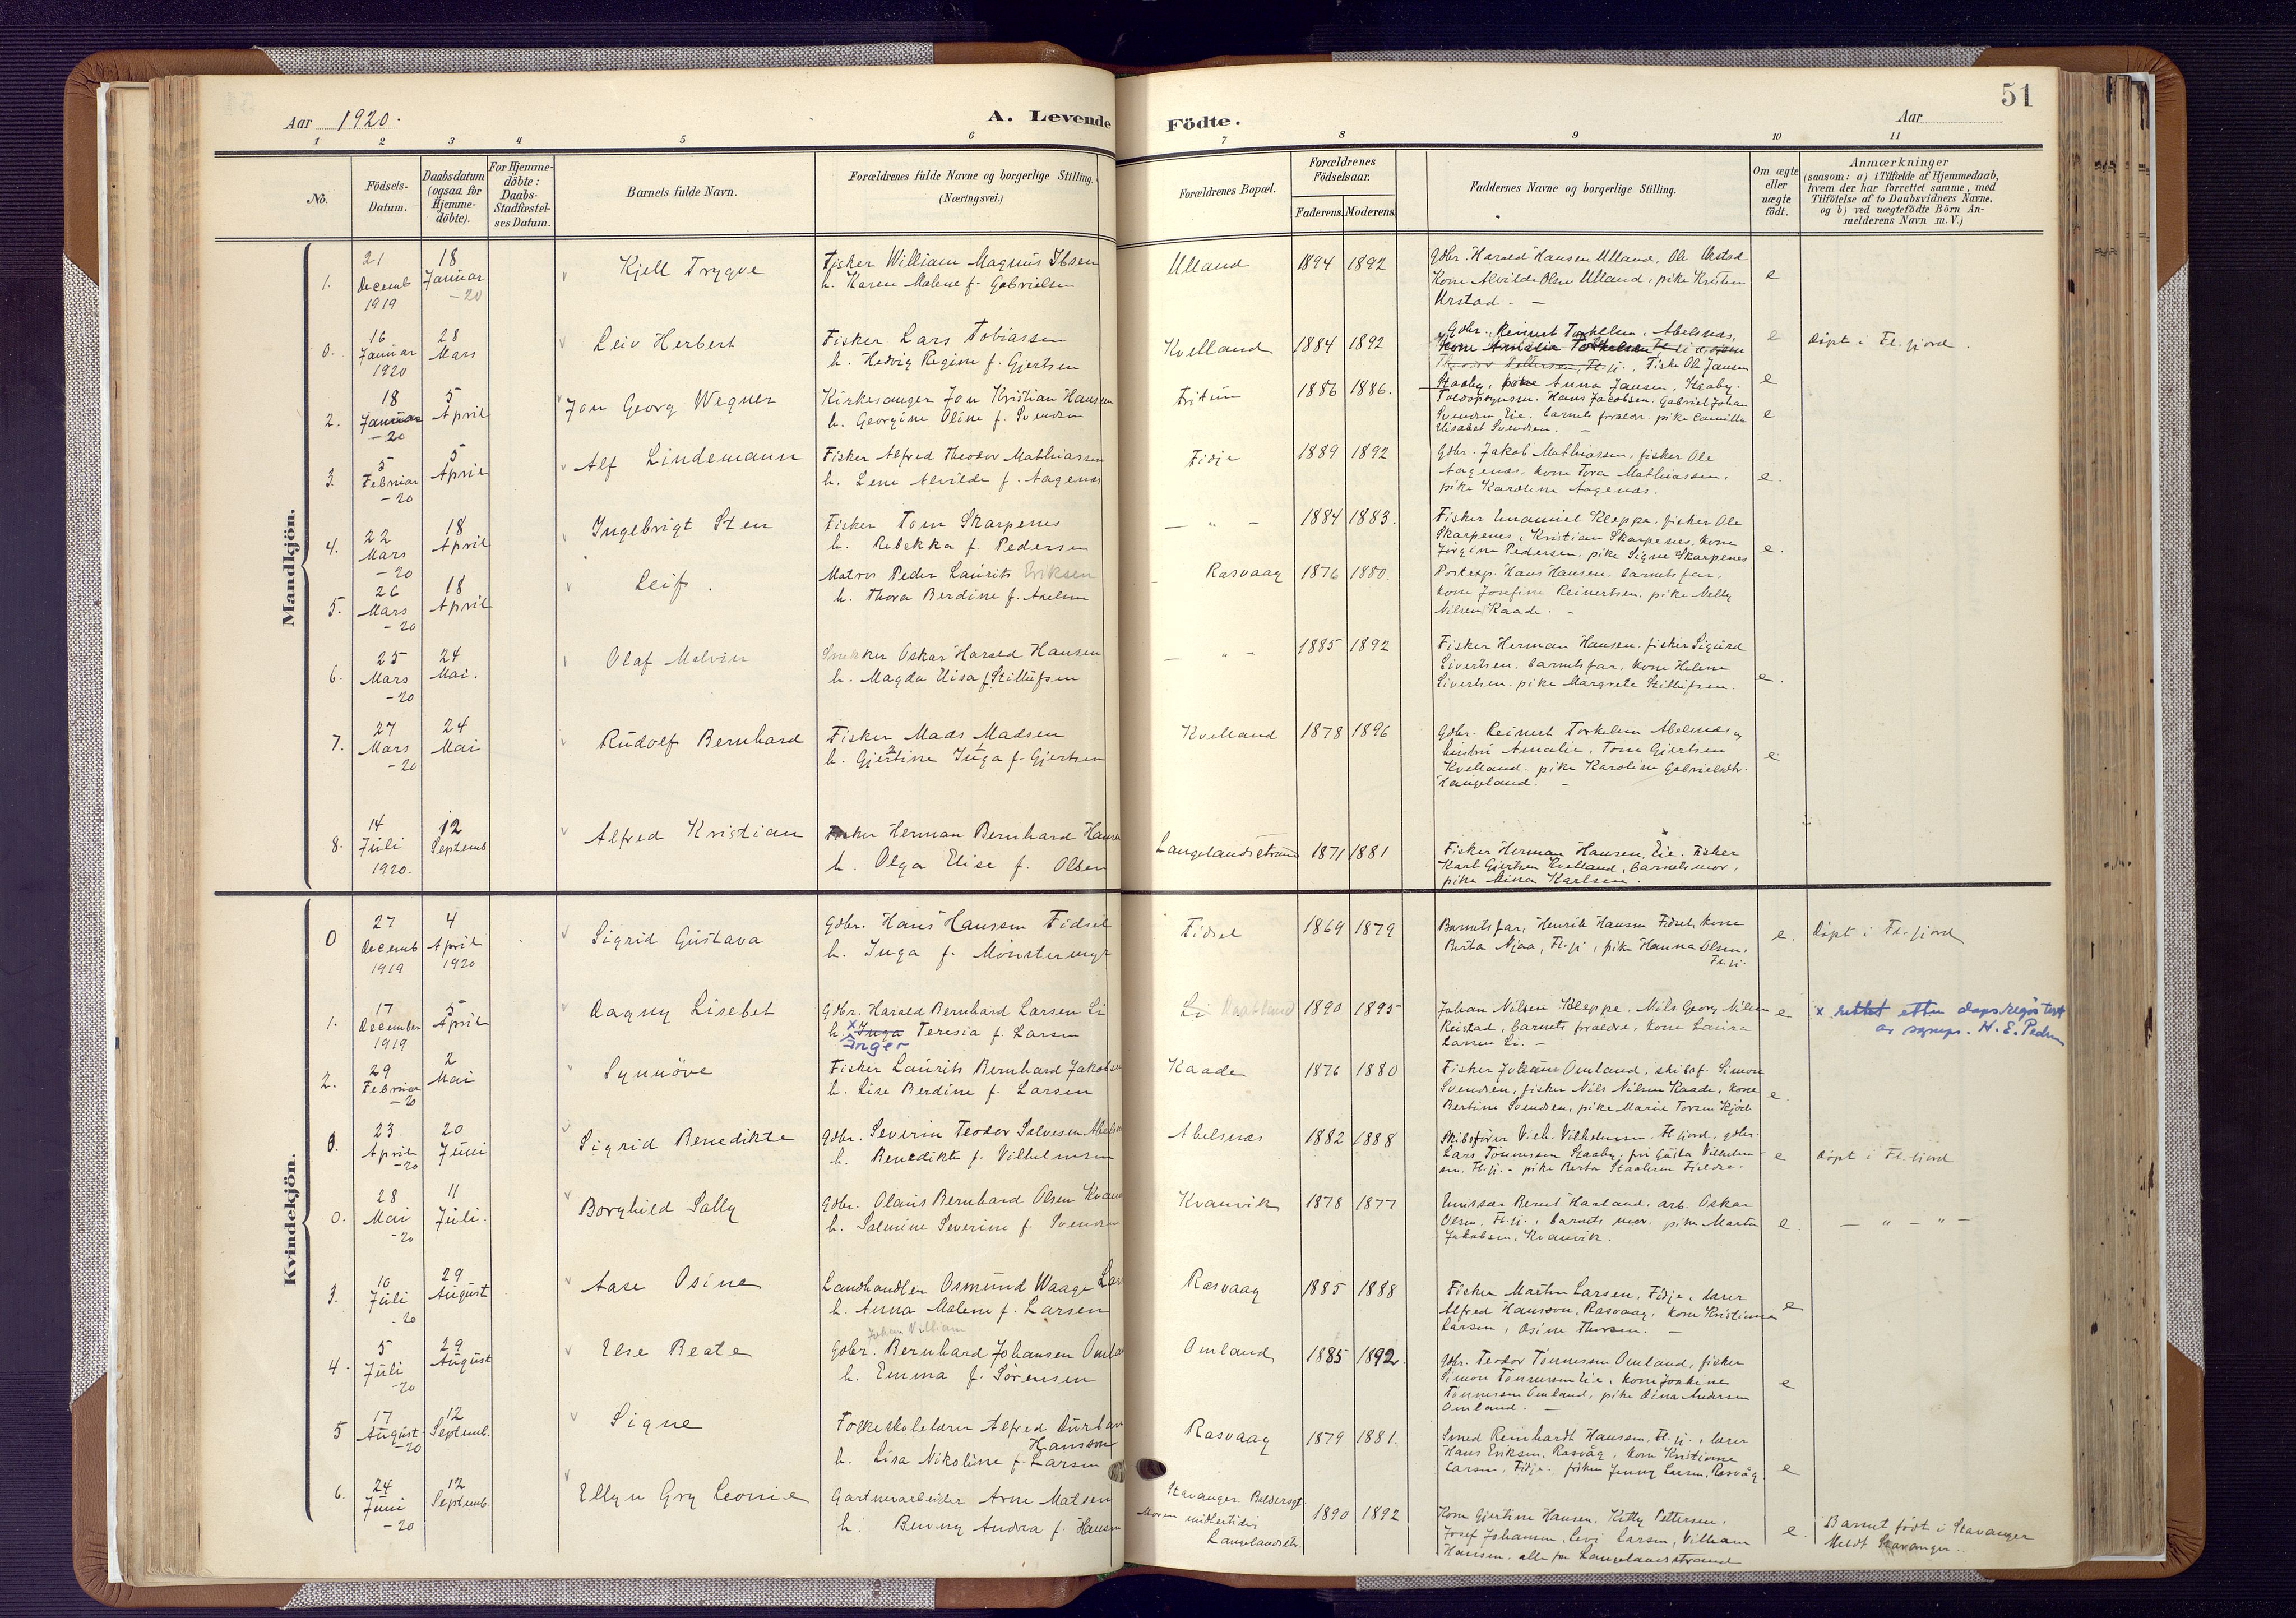 51
Aar 1920.
A. Levende Födte.
Aar
1 2 3 4 5 6 7 8 9 10 11
No.
Födsels-Datum.
Daabsdatum (ogsaa för Hjemme-döbte).
For Hjemme-döbte: Daabs-Stadfæstel-ses Datum.
Barnets fulde Navn.
Forældrenes fulde Navne og borgerlige Stilling. (Næringsvei.)
Forældrenes Bopæl.
Forældrenes Födselsaar.
Faderens. Moderens.
Faddernes Navne og borgerlige Stilling.
Om ægte eller uægte födt.
Anmærkninger
(saasom: a) i Tilfælde af Hjemmedaab,
hvem der har forrettet samme, med
Tilföielse af to Daabsvidners Navne,
og b) ved uægtefödte Börn An-
melderens Navn m. V.)
Mandkjön.
1. 21 Decemb 1919 18 Januar -20 Kjell Trygve
Fisker William Magnus Ibsen
h. Karen Malene f. Gabrielsen
Ulland 1894 1892
Gdbr. Harald Hansen Ulland, Ole Urstad
Kone Alvilde Olsen Ulland, pike Kristen
Urstad - e
0. 16 Januar 1920 28 Mars Leiv Herbert
Fisker Lars Tobiassen
h. Hedvig Regine f. Gjertsen
Kvelland 1884 1892
Gdbr. Reinert Torkelsen, Abelsnæs,
Kone Amalia Torkelsen
Fiske Ole Jansen
Staaby, pike Anna Jansen, Staaby.
e Döpt i Fl. fjord.
2. 18 Januar -20 5 April Jon Georg Wegner
Kirkesanger Jon Kristian Hansen
h. Georgine Oline f. Svendsen
Tritun 1886 1886.
Hans Jacobsen, Gabriel Johan
Svendsen, Eie, barnets foraldr. pike Camilla
Elisabet Svendsen. e
3. 5 Februar -20 5 April Alf Lindemann
Fisker Alfred Theodor Mathiassen
h. Lene Alvilde f. Aagenæs
Fidje 1889 1892
Gdbr. Jakob Mathiassen, fisker Ole
Aagenæs, kone Tora Mathiassen,
pike Karoline Aagenæs. e.
4. 22 Mars -20 18 April Ingebrigt Sten
Fisker Tom Skarpenes
h. Rebekka f. Pedersen
- " - 1884 1883.
Fisker Emanuel Kleppe, fisker Ole
Skarpenes, Kristian Skarpenes, kone
Jørgine Pedersen, pike Signe Skarpenes e.
5. 26 Mars -20 18 April Leif.
Matros Peder Laurits Eriksen
h. Thora Berdine f. Axelsen
Rasvaag 1876 1880.
Postexp. Hans Hansen, barnets far,
kone Josefine Reinertsen, pike Nelly
Nilsen, Kaade. -
6. 25 Mars -20 24 Mai. Olaf Malvin
Snekker Oskar Harald Hansen
h. Magda Elisa f. Stillufsen
- " - 1885 1892
Fisker Herman Hansen, fisker Sigurd
Sivertsen, barnets far, kone Helene
Sivertsen, pike Margrete Stillufsen. e.
7. 27 Mars -20 24 Mai Rudolf Bernhard
Fisker Mads Madsen
h. Gjertine Inga f. Gjertsen
Kvelland 1878 1896
Gdbr. Reinert Torkelsen Abelsnæs og
hustru Amalie, Tom Gjertsen
Kvelland, pike Karoline Gabrielsdtr.
Haugeland. - e
8. 14 Juli 1920. 12 Septemb Alfred Kristian
Fisker Herman Bernhard Hansen
h. Olga Elise f. Olsen
Langelandsstrand 1871 1881
Fisker Herman Hansen, Eie. Fisker
Karl Gjertsen Kvelland, barnets mor,
pike Mina Karlsen.
Kvindekjön.
0 27 Decemb 1919 4 April 1920 Sigrid Gustava
Gdbr. Hans Hansen Fidsel
h. Inga f.
Fidsel 1869 1879
Barnets far, Henrik Hansen Fidsel, kone
Berta Njaa, Fl. fj, pike Hanna Olsen,
Fl. fj. e. Döpt i Fl. fjord
1. 17 December 1919 5 April Dagny Lisebet
Gdbr. Harald Bernhard Larsen Li
h. x Inga Teresia f. Larsen
Inger
Li 1890 1895
Johan Nilsen Kleppe, Nils Georg Nilsen
Reistad, barnets foraldre, kone Laura
Larsen Li. - e
x rettet etter dåpsregistret
av sogneps. H. E. Peder
2. 29 Februar -20 2 Mai Synnöve
Fisker Laurits Bernhard Jakobsen
h. Lise Berdine f. Larsen
Kaade 1876 1880
Fisker Julius Omland, skibsf. Simon
Svendsen, fisker Nils Nilsen Kaade, kone
Bertine Svendsen, pike Marie Torsen Kjöde e.
0. 23 April -20 20 Juni Sigrid Benedikte
Gdbr. Severin Teodor Salvesen Abelsn
h. Benedikte f. Vilhelmsen
Abelsnæs 1882 1888
Skibsfører Vilh. Vilhelmsen, Fl. fjord, gdbr.
Lars Tönnessen Staaby, fru Gusta Vilhelm-
sen, Fl. fj. - pike Berta Staalesen Fjeldse. e Döpt i Fl. fjord
0. 28 Mai -20 11 Juli. Borghild Sally
Gdbr. Olaus Bernhard Olsen Kvanv
h. Salmine Severine f. Svendsen
Kvanvik 1878 1877
Emissær Bernt Haaland, arb. Oskar
Olsen, Fl. fj., barnets mor, pike Marta
Jakobsen, Kvanvik. e. - " - " -
3. 10 Juli -20 29 August Aase Osine
Landhandler Osmund Waage Lar
h. Anna Malene f. Larsen
Rasvaag 1885 1888
Fisker Martin Larsen, Fidje, lærer
Alfred Hansson, Rasvaag, kone Kristianna
Larsen, Osine Thorsen. - e
4. 5 Juli -20 29 August Else Beate
Johan Villiam
Gdbr. Bernhard Johansen Omla
h. Emma f. Sörensen
Omland 1885 1892.
Gdbr. Teodor Tönnessen Omland, fisker
Simon Tönnessen Eie, kone Joakine
Tönnessen Omland, pike Dina Andersen
Omland. - e
5 17 August -20 12 Septemb. Signe
Folkeskolelærer Alfred Durban
Hansson
h. Lisa Nikoline f. Larsen
Rasvaag 1879 1881.
Smed Reinhardt Hansen, Fl. fj., lærer
Hans Eriksen, Rasvåg, kone Kristianne
Larsen, Fidje. frøken Jenny Larsen, Rasvåg. e
6. 24 Juni -20 12 Septemb. Ellyn Gry Leonie
Gartnerarbeider Arne Matsen
h. Benny Andrea f. Hansen
Stavanger
Moren midlertidig
Langelandsstr. 1890 1892
Kone Gjertine Hansen, Kitty Pettersen,
Josef Johansen, Levi Larsen, Villiam
Hansen, alle fra Langelandsstrand e.
Barnet født i Stavanger
Meldt Stavanger.